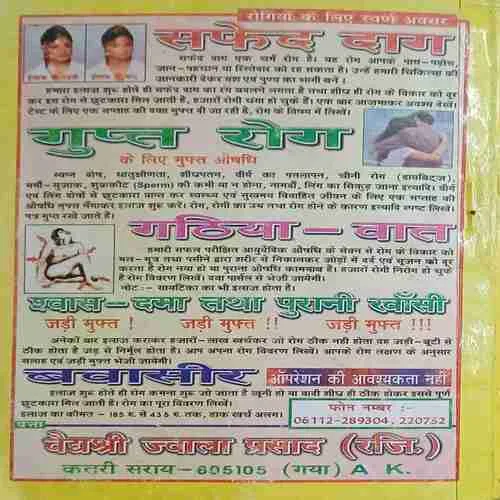 रोगियों के लिए स्वर्ण अवसर
सफेद दाग
सफेद दाग एक चर्म रोग है। यह रोग आपके पास-पड़ोस,
जान-पहचान या रिश्तेदार को रह सकता है। उन्हें हमारी चिकित्सा की
जानकारी देकर यश एवं पुण्य का भागी बनें।
हमारा इलाज शुरू होते ही सफेद दाग का रंग बदलने लगता है तथा शीघ्र ही रोग के विकार को दूर
कर इस रोग से छुटकारा मिल जाती है, हजारों रोगी चंगा हो चुके हैं। एक बार आजमाकर अवश्य देखें।
टेस्ट के लिए एक सप्ताह की दवा मुफ्त दी जा रही है, रोग के विषय में लिखें।
गुप्त रोग
के लिए मुफ्त औषधि
स्वप्न दोष, धातुक्षीणता, शीघ्रपतन, वीर्य का पतलापन, चीनी रोग (डायबिट्ज),
गर्मी-सुजाक, शुक्रकीट (Sperm) की कमी या न होना, नामर्दी, लिंग का सिकुड़ जाना इत्यादि। वीर्य
एवं लिंग दोषों से छुटकारा प्राप्त कर स्वास्थ्य एवं सुखमय विवाहित जीवन के लिए एक सप्ताह की
औषधि मुफ्त मँगाकर इलाज शुरू करें। रोग, रोगी का उम्र तथा रोग होने के कारण इत्यादि स्पष्ट लिखें।
पत्र गुप्त रखे जाते हैं।
गठिया - वात
हमारी सफल परीक्षित आयुर्वेदिक औषधि के सेवन से रोग के विकार को
मल-मूत्र तथा पसीने द्वारा शरीर से निकालकर जोड़ों में दर्द एवं सूजन को दूर
करता है रोग नया हो या पुराना औषधि कामयाब है। हजारों रोगी निरोग हो चुके
हैं रोग विवरण लिखें। दवा पार्सल से भेजी जायेगी।
नोट :- सायटिका का भी इलाज होता है।
श्वास-दमा तथा पुरानी खाँसी
जड़ी मुफ्त ! जड़ी मुफ्त !! जड़ी मुफ्त !!!
अनेकों बार इलाज कराकर हजारों-लाख खर्चकर जो रोग ठीक नही होती वह जड़ी-बूटी से
ठीक होता है जड़ से निर्मूल होता है। आप अपना रोग विवरण लिखें। आपके रोग लक्षण के अनुसार
सलाह एवं जड़ी मुफ्त भेजी जायेगी।
बवासीर
ऑपरेशन की आवश्यकता नहीं
इलाज शुरू होते ही रोग कमना शुरू जो जाता है खूनी हो या बादी शीघ्र ही ठीक होकर इससे पूर्ण
छुटकारा मिल जाती है। रोग का पूरा विवरण लिखें।
इलाज का कीमत - 185 रु. से 435 रु. तक, डाक खर्च अलग।
फोन नम्बर :-
06112-289304, 220752
पता
वैद्यश्री ज्वाला प्रसाद (रजि.)
कतरी सराय-805105 (गया) A K.